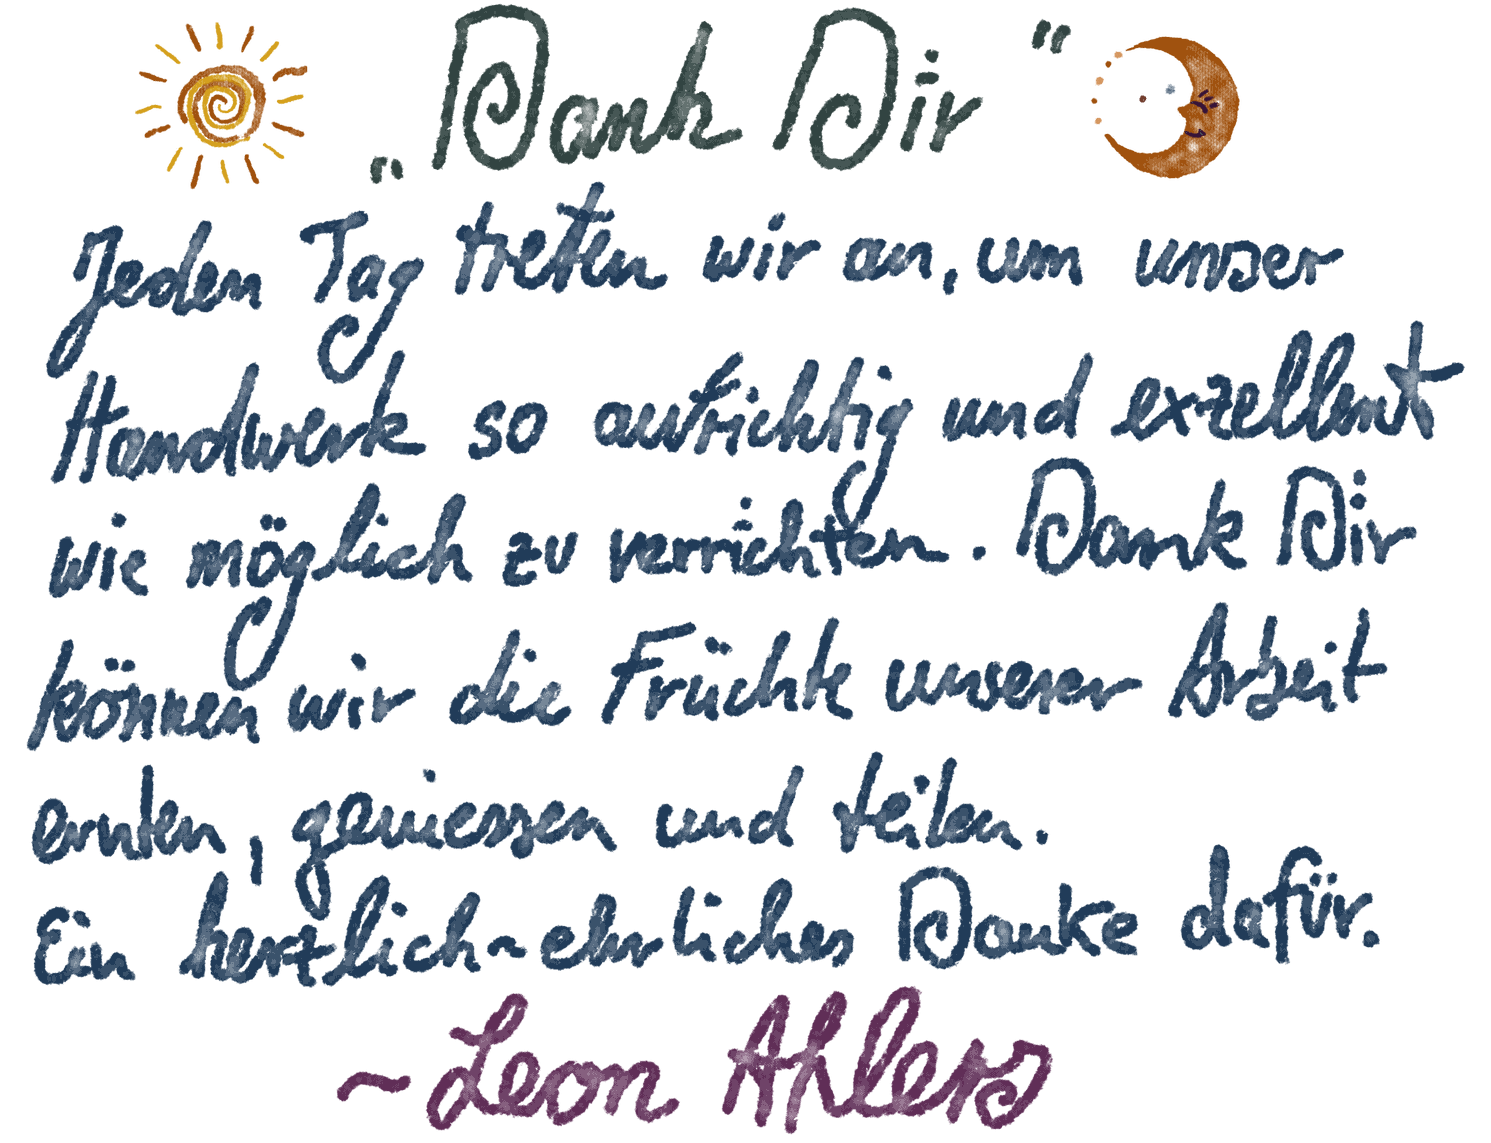 „Dank Dir"
Jeden Tag treten wir an, um unser
Handwerk so aufrichtig und exzellent
wie möglich zu verrichten. Dank Dir
können wir die Früchte unserer Arbeit
ernten, geniessen und teilen.
Ein herzlich~ehrliches Danke dafür.
~Leon Ahlers